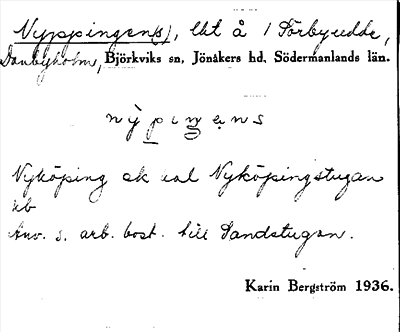 Nyppingen(s), lht å 1 Sörbyudde,
Danbyholm, Björkviks sn, Jönåkers hd, Södermanlands län.
nỳpiŋens
Nyköping ek val Nyköpingstugan
ub
Anv. s. arb. bost. till Sandstugan.
Karin Bergström 1936.